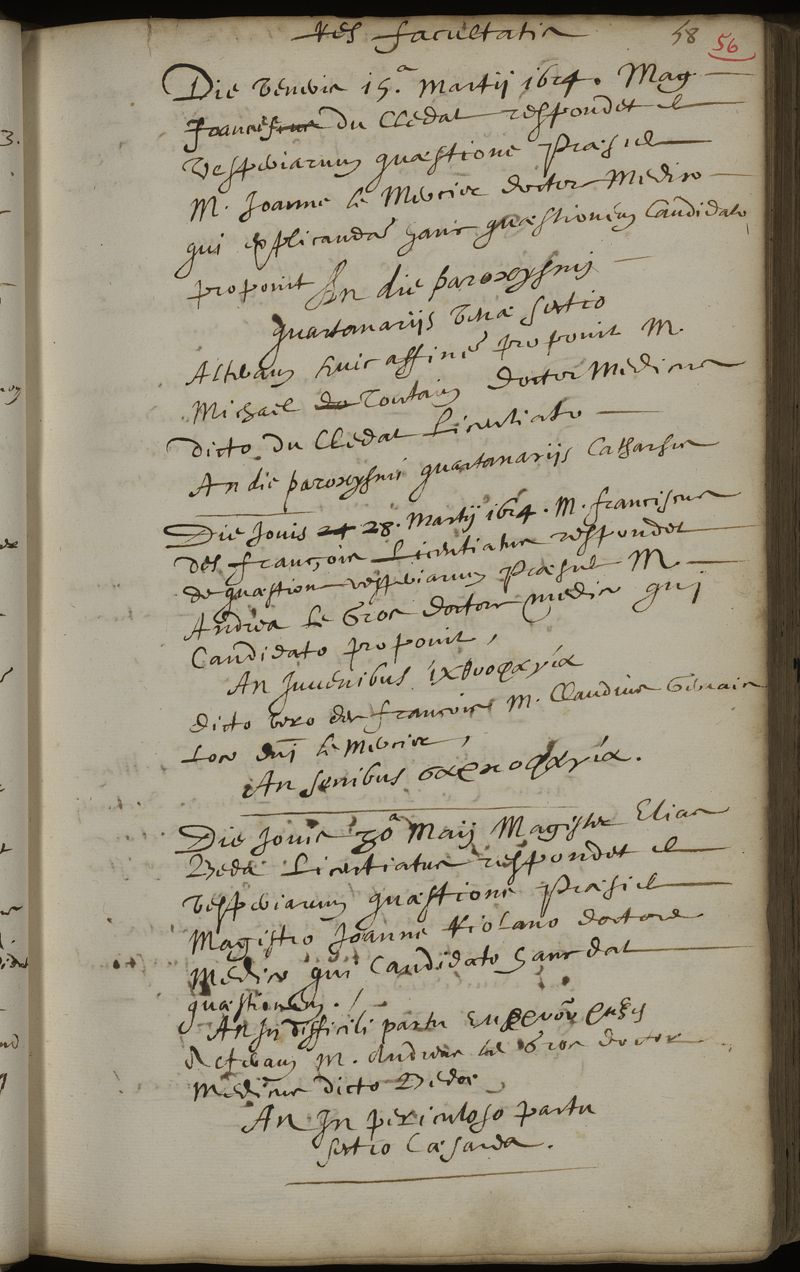 Res facultatis 58 56
Die Veneris 15ᵃ Martij 1624. Mag
du Clledat respondet de
Vesperiarum quæstione Præside
M. Joanne le Mercier doctore Medico
qui explicandā hanc quæstionem Candidato
proponit An die paroxysmi
quartanarijs venæ sectio
Alteram huic affinē proponit M.
Michael de Toutain doctor Medicus
dicto du Clledat Licentiato
An die paroxysmi quartanarijs Catharsis
Die Jovis 24 28. Martij 1624. M. franciscus
des françois Licentiatus respondet
de quæstione vesperiarum Præside M.
Andrea le Gros doctore medico qui
Candidato proponit,
An Juvenibus ἰχθυοφαγία
dicto vero des françois M. Claudius Gervais
loco dnj le Mercier,
An senibus σαρκοφαγία.
Die Jovis 30ᵃ Maij Magister Elias
Beda Licentiatus respondet de
vesperiarum quæstione Præside
Magistro Joanne Riolano doctore
Medico qui Candidato hanc dat
quæstionem.
An In difficili partu
Alteram M. Andreas le Gros doctor
Medicus dicto Bedæ
An In periculoso partu
sectio Cæsarea.